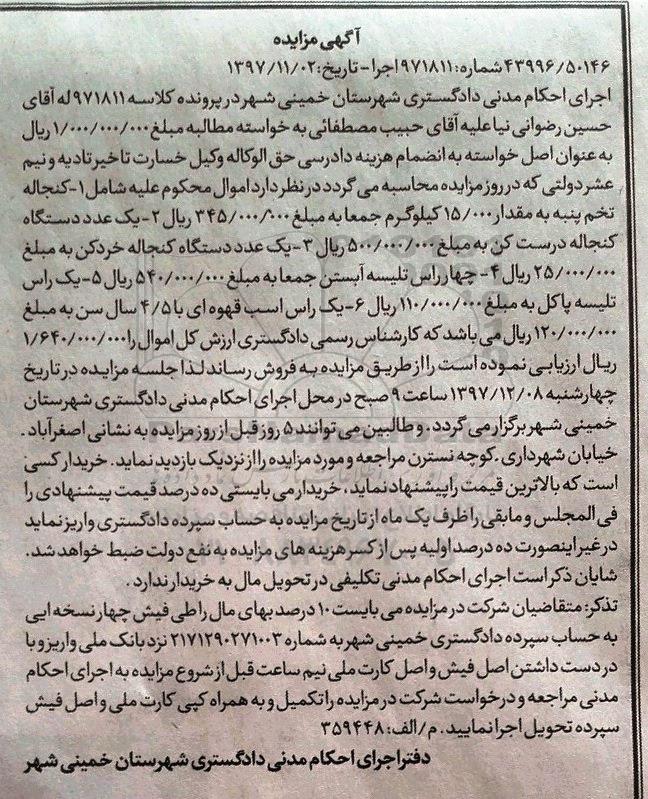 آگهی مزایده
۴۳۹۹۶/۵۰۱۴۶ شماره: ۹۷۱۸۱۱ اجرا - تاریخ: ۱۳۹۷/۱۱/۰۲
اجرای احکام مدنی دادگستری شهرستان خمینی شهر در پرونده کلاسه ۹۷۱۸۱۱ له آقای
حسین رضوانی نیا علیه آقای حبیب مصطفائی به خواسته مطالبه مبلغ ۱/۰۰۰/۰۰۰/۰۰۰ ریال
به عنوان اصل خواسته به انضمام هزینه دادرسی حق الوکاله وکیل خسارت تاخیر تادیه و نیم
عشر دولتی که در روز مزایده محاسبه می گردد در نظر دارد اموال محکوم علیه شامل ۱- کنجاله
تخم پنبه به مقدار ۱۵/۰۰۰ کیلوگرم جمعا به مبلغ ۳۴۵/۰۰۰/۰۰۰ ریال ۲- یک عدد دستگاه
کنجاله درست کن به مبلغ ۵۰۰/۰۰۰/۰۰۰ ریال ۳- یک عدد دستگاه کنجاله خردکن به مبلغ
۲۵/۰۰۰/۰۰۰ ریال ۴- چهار راس تلیسه آبستن جمعا به مبلغ ۵۴۰/۰۰۰/۰۰۰ ریال ۵- یک راس
تلیسه پاکل به مبلغ ۱۱۰/۰۰۰/۰۰۰ ریال ۶- یک راس اسب قهوه ای با ۴/۵ سال سن به مبلغ
۱۲۰/۰۰۰/۰۰۰ ریال می باشد که کارشناس رسمی دادگستری ارزش کل اموال را ۱/۶۴۰/۰۰۰/۰۰۰
ریال ارزیابی نموده است را از طریق مزایده به فروش رساند لذا جلسه مزایده در تاریخ
چهارشنبه ۱۳۹۷/۱۲/۰۸ ساعت ۹ صبح در محل اجرای احکام مدنی دادگستری شهرستان
خمینی شهر برگزار می گردد. و طالبین می توانند ۵ روز قبل از روز مزایده به نشانی اصغرآباد .
خیابان شهرداری .کوچه نسترن مراجعه و مورد مزایده را از نزدیک بازدید نماید. خریدار کسی
است که بالاترین قیمت را پیشنهاد نماید، خریدار می بایستی ده درصد قیمت پیشنهادی را
فی المجلس و مابقی را ظرف یک ماه از تاریخ مزایده به حساب سپرده دادگستری واریز نماید
در غیر اینصورت ده درصد اولیه پس از کسر هزینه های مزایده به نفع دولت ضبط خواهد شد.
شایان ذکر است اجرای احکام مدنی تکلیفی در تحویل مال به خریدار ندارد .
تذکر: متقاضیان شرکت در مزایده می بایست ۱۰ درصد بهای مال را طی فیش چهار نسخه ایی
به حساب سپرده دادگستری خمینی شهر به شماره ۲۱۷۱۲۹۰۲۷۱۰۰۳ نزد بانک ملی واریز و با
در دست داشتن اصل فیش و اصل کارت ملی نیم ساعت قبل از شروع مزایده به اجرای احکام
مدنی مراجعه و درخواست شرکت در مزایده را تکمیل و به همراه کپی کارت ملی و اصل فیش
سپرده تحویل اجرا نمایید. م/الف: ۳۵۹۴۴۸
دفتر اجرای احکام مدنی دادگستری شهرستان خمینی شهر